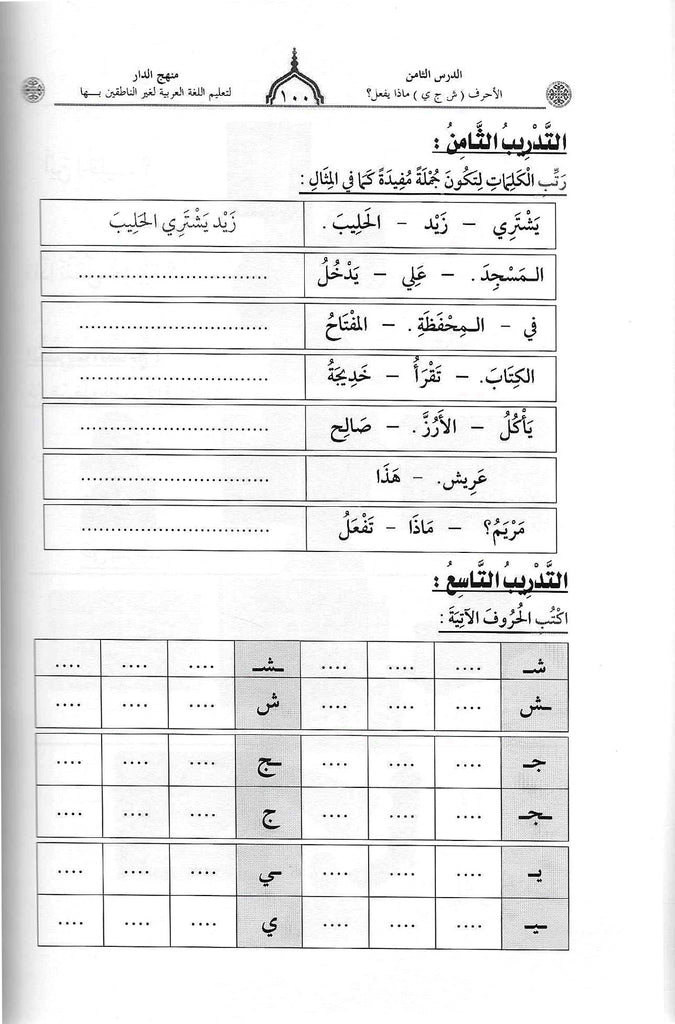 الدرس الثامن
الأحرف ( ش ج ي ) ماذا يفعل؟
١٠٠
منهج الدار
لتعليم اللغة العربية لغير الناطقين بـــها
التَّدْرِيبُ الثَّامِنُ :
رَتِّبِ الْكَلِمَاتِ لِتَكُونَ جُمْلَةً مُفِيدَةً كَمَا فِي المِثَالِ :
يَشْتَرِي – زَيْد – الحَلِيبَ . زَيْد يَشْتَرِي الحَلِيبَ
الـمَسْجِدَ . – عَلِي – يَدْخُلُ ..............................
في – الـمِحْفَظَةِ . – المفْتَاحُ ..............................
الكِتَابَ. – تَقْرَأُ – خَدِيجَةُ ..............................
يَأْكُلُ – الأَرُزَّ . – صَالِح ..............................
عَرِيش. – هَذَا ..............................
مَرْيَمُ؟ – مَاذَا – تَفْعَلُ ..............................
التَّدْرِيبُ التَّاسِعُ :
اكْتُبِ الحُرُوفَ الآتِيَةَ :
شـ .... .... .... ـشـ .... .... ....
ـش .... .... .... ش .... .... ....
جـ .... .... .... ـج .... .... ....
ـجـ .... .... .... ج .... .... ....
يـ .... .... .... ـي .... .... ....
ـيـ .... .... .... ي .... .... ....